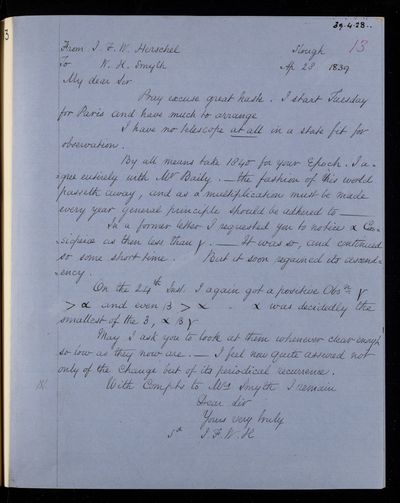 39.4.23..
13
From J. F. W. Herschel Slough
To W. H. Smyth Ap 23 1839
My dear Sir
Pray excuse great haste. I start Tuesday
for Paris and have much to arrange
I have no telescope at all in a state fit for
observation.
By all means take 1840 for your Epoch. I a-
-gree entirely with Mr Baily. — the fashion of this world
passeth away, and as a multiplication must be made
every year general principle should be adhered to —
In a former letter I requested you to notice α Cas-
-siopeiæ as then less than γ. — It was so, and continued
so some short time. But it soon regained its ascend-
-ency.
On the 24th Inst. I again got a positive Obsn γ
> α and even β > α - α was decidedly the
smallest of the 3, α β γ
May I ask you to look at them whenever clear enough
so low as they now are. — I feel now quite assured not
only of the change but of its periodical recurrence.
With Compts to Mrs Smyth I remain
Dear Sir
Yours very truly
J. F. W. H